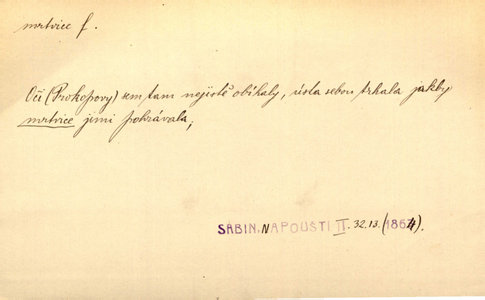 mrtvice f.
Oči (Prokopovy) sem tam nejistě obíhaly, ústa sebou trhala jakby
mrtvice jimi pohrávala;
SABIN, NA POUŠTI II. 32.13. (1864).